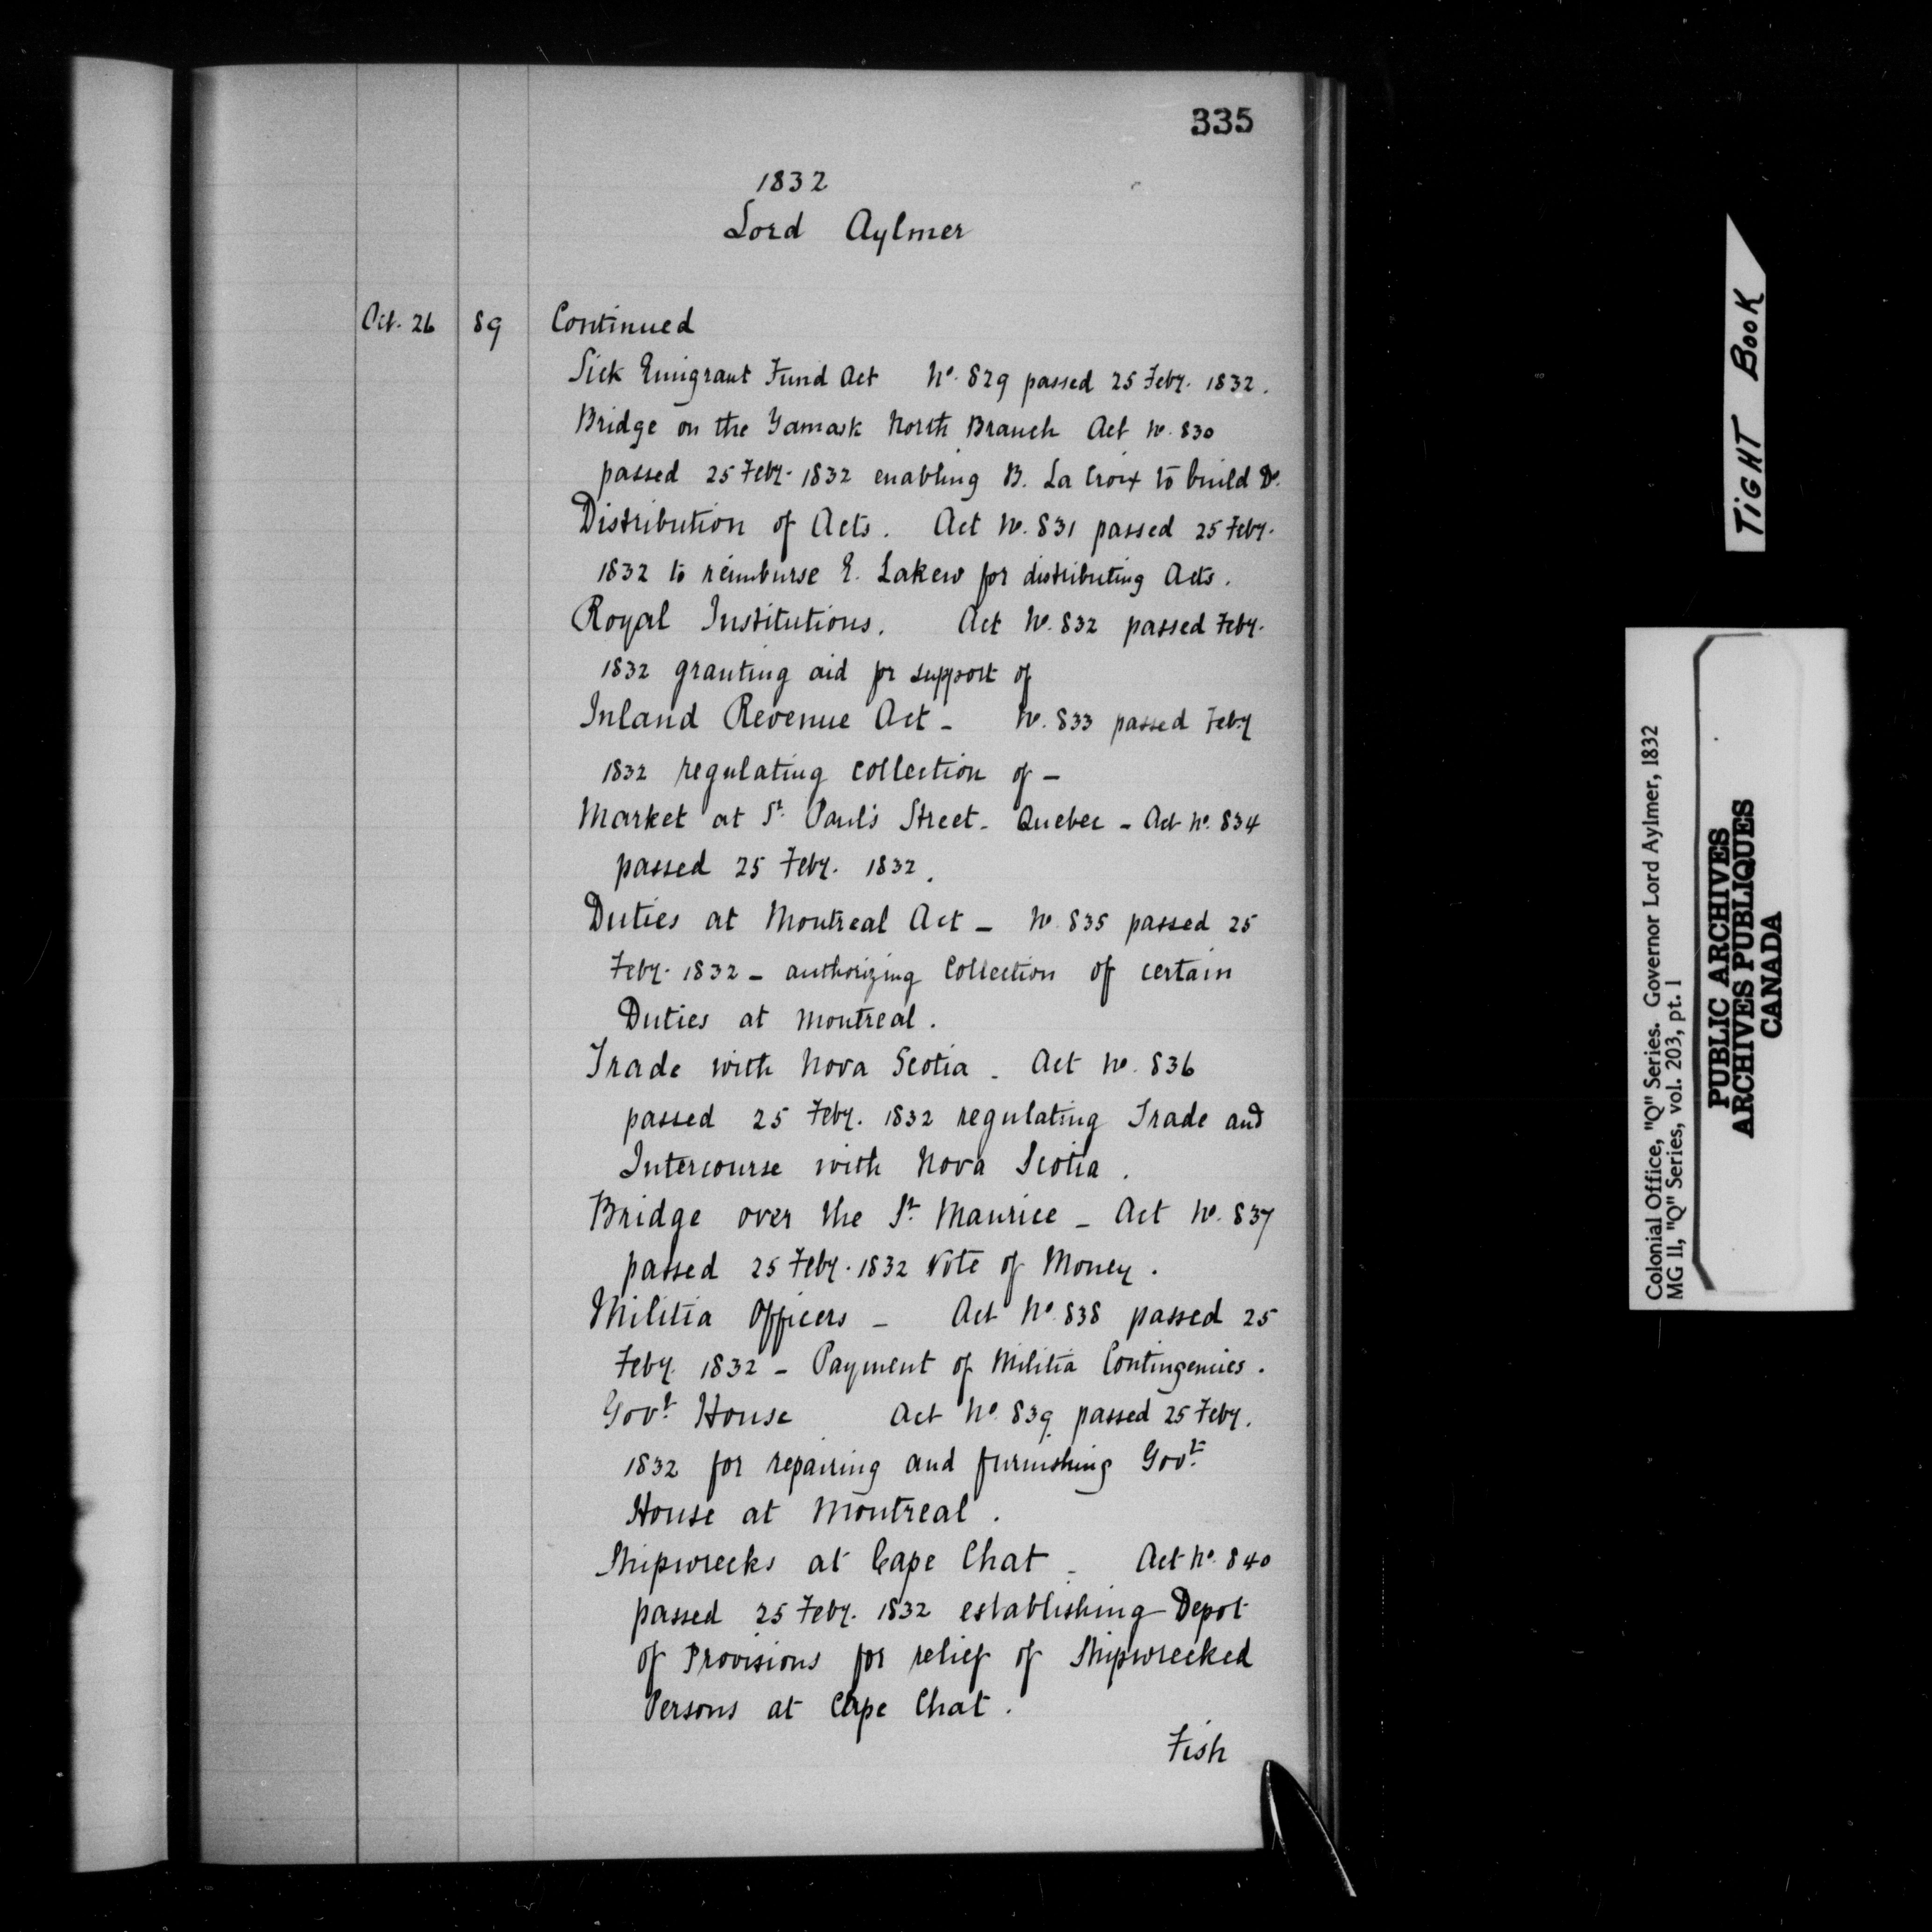 335
1832
Lord Aylmer
Oct. 26 89 Continued
Sick Emigrant Fund Act No. 829 passed 25 Feby. 1832.
Bridge on the Yamask North Branch Act No. 830
passed 25 Feby. 1832 enabling B. La Croix to build Do.
Distribution of Acts. Act No. 831 passed 25 Feby.
1832 to reimburse E. Lakew for distributing Acts.
Royal Institutions. Act No. 832 passed Feby.
1832 granting aid for support of
Inland Revenue Act - No. 833 passed Feby
1832 regulating collection of -
Market at St. Paul's Street - Quebec - Act No. 834
passed 25 Feby. 1832.
Duties at Montreal Act - No. 835 passed 25
Feby. 1832 - authorizing Collection of certain
Duties at Montreal.
Trade with Nova Scotia - Act No. 836
passed 25 Feby. 1832 regulating Trade and
Intercourse with Nova Scotia.
Bridge over the St. Maurice - Act No. 837
passed 25 Feby. 1832 Vote of Money.
Militia Officers - Act No. 838 passed 25
Feby. 1832 - Payment of Militia Contingencies.
Govt. House Act No. 839 passed 25 Feby.
1832 for repairing and furnishing Govt.
House at Montreal.
Shipwrecks at Cape Chat - Act No. 840
passed 25 Feby. 1832 establishing Depot
of Provisions for relief of Shipwrecked
Persons at Cape Chat.
Fish
TIGHT BOOK
Colonial Office, "Q" Series. Governor Lord Aylmer, 1832
MG 11, "Q" Series, vol. 203, pt. 1
PUBLIC ARCHIVES
ARCHIVES PUBLIQUES
CANADA